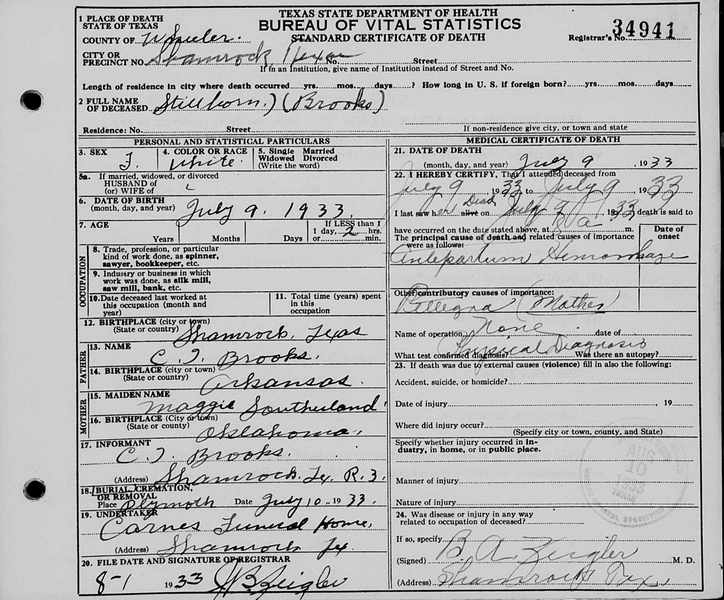 TEXAS STATE DEPARTMENT OF HEALTH
BUREAU OF VITAL STATISTICS
STANDARD CERTIFICATE OF DEATH
Registrar's No. 34941
1 PLACE OF DEATH
STATE OF TEXAS
COUNTY OF Wheeler
CITY OR
PRECINCT NO. Shamrock, Texas No. Street
If in an Institution, give name of Institution instead of Street and No.
Length of residence in city where death occurred yrs. mos. days? How long in U. S. if foreign born? yrs. mos. days
2 FULL NAME
OF DECEASED Stillborn) (Brooks)
Residence: No. Street
If non-residence give city, or town and state
PERSONAL AND STATISTICAL PARTICULARS
3. SEX F.
4. COLOR OR RACE White
5. Single Married
Widowed Divorced
(Write the word)
5a. If married, widowed, or divorced
HUSBAND OF
(or) WIFE OF
6. DATE OF BIRTH
(month, day, and year) July 9. 1933.
7. AGE
Years Months Days
If LESS than 1
1 day, 2 hrs.
or min.
OCCUPATION
8. Trade, profession, or particular
kind of work done, as spinner,
sawyer, bookkeeper, etc.
9. Industry or business in which
work was done, as silk mill,
saw mill, bank, etc.
10. Date deceased last worked at
this occupation (month and
year)
11. Total time (years) spent in
this occupation
12. BIRTHPLACE (city or town)
(State or country) Shamrock, Texas
FATHER
13. NAME C. J. Brooks.
14. BIRTHPLACE (city or town)
(State or country) Arkansas.
MOTHER
15. MAIDEN NAME Maggie Southerland
16. BIRTHPLACE (City or town)
(State or country) Oklahoma.
17. INFORMANT C. J. Brooks.
(Address) Shamrock, Tx. R. 3.
18. BURIAL, CREMATION,
OR REMOVAL
Place Plymoth Date July 10 - 1933.
19. UNDERTAKER Carnes Funeral Home,
(Address) Shamrock Tx
20. FILE DATE AND SIGNATURE OF REGISTRAR
8-1 1933 Zeigler
MEDICAL CERTIFICATE OF DEATH
21. DATE OF DEATH
(month, day, and year) July 9 , 1933
22. I HEREBY CERTIFY, That I attended deceased from
July 9 1933 to July 9 1933
I last saw her Dead alive on July 9 1933 death is said to
have occurred on the date stated above, at a m.
The principal cause of death and related causes of importance
were as follows:
Date of
onset
Antepartum Hemorrhage
Other contributory causes of importance:
(Mother)
Name of operation None date of
What test confirmed diagnosis? Physical Diagnosis Was there an autopsy?
23. If death was due to external causes (violence) fill in also the following:
Accident, suicide, or homicide?
Date of injury 19
Where did injury occur?
(Specify city or town, county, and State)
Specify whether injury occurred in in-
dustry, in home, or in public place.
Manner of injury
Nature of injury
24. Was disease or injury in any way
related to occupation of deceased?
If so, specify
(Signed) B. A. Zeigler M. D.
(Address) Shamrock Tex
AUG
10